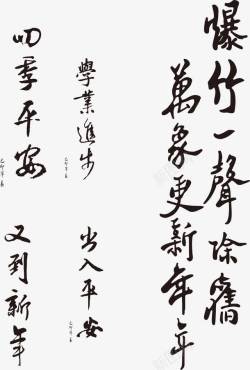 爆竹一聲除舊
萬象更新年年
學業進步
四季平安
出入平安
又到新年